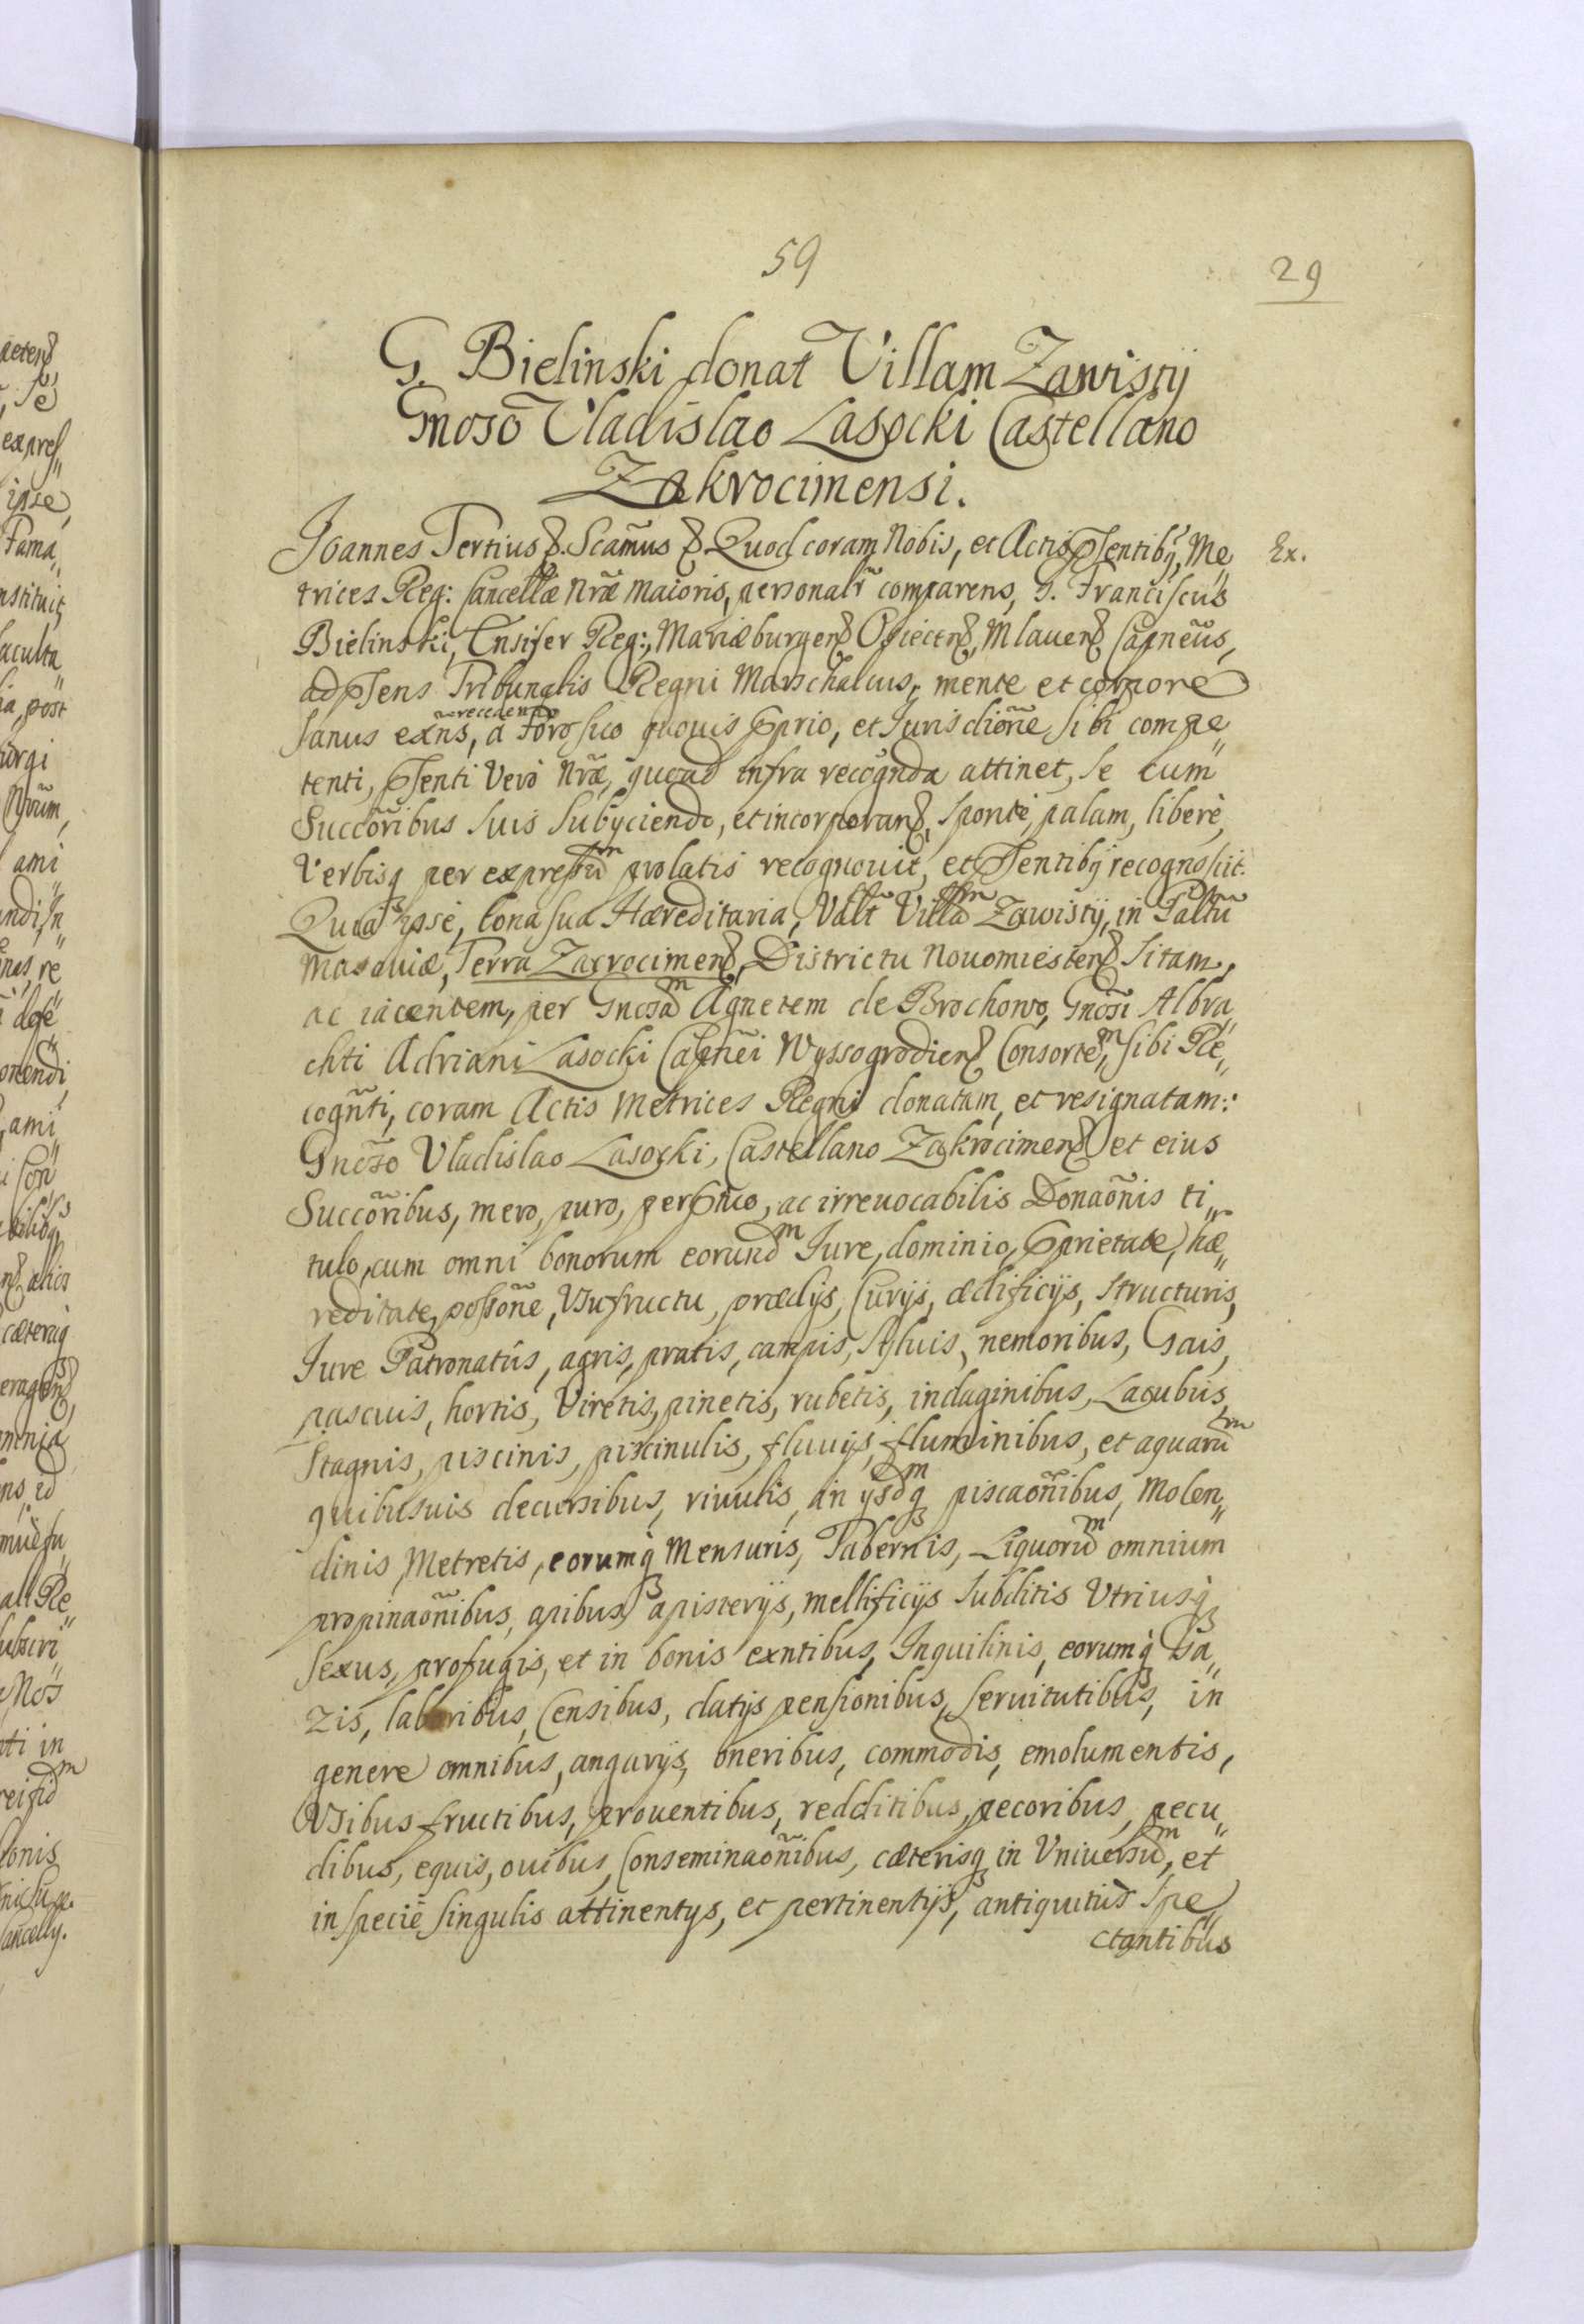 59
29
G. Bielinski donat Villam Zawisty
Gnoso Vladislao Lasocki Castellano
Zakrocimensi.
Joannes Tertius &. Scamus & Quod coram Nobis, et Actis psentibq, Me„
Ex.
trices Reg: Cancellæ Nræ Maioris, personalr comparens, G. Franciscus
Bielinski, Ensifer Reg:, Mariæburgen, Osiecen, Mlauen Capneus,
ad psens Tribunalis Regni Marschalcus, mente et corpore
recedendo
Sanus exns, a Foro suo quouis pprio, et Jurisdione sibi compe„
tenti, psenti Vero Nræ, quoad infra recognda attinet, se cum
Succoribus suis subyciendo, et incorporan, sponte, palam, libere,
Verbisq per expressum prolatis recognouit, et psentibq recognoscit.
Quia ipse, bona sua Hæreditaria, Valt Villam Zawisty, in Paltu
Masouiæ, Terra Zacrocimen, Districtu Nouomiesten sitam,
ac iacentem, per Gnosam Agnetem de Brochowo, Gnosi Albra„
chti Adriani Lasocki Capnei Wyssogrodien Consortem, sibi Re„
cognti, coram Actis Metrices Regni donatam, et resignatam:
Gnoso Vladislao Lasocki, Castellano Zakrocimen et eius
Succoribus, mero, puro, perptuo, ac irreuocabilis Donaonis ti„
tulo, cum omni bonorum eorundm Jure, dominio, pprietate, hæ„
reditate, possone, Vsufructu, prædijs, Curijs, ædificijs, structuris,
Jure Patronatûs, agris, pratis, campis, syluis, nemoribus, Gais,
pascuis, hortis, Viretis, pinetis, rubetis, indaginibus, Lacubus,
Stagnis, piscinis, piscinulis, fluuijs, fluminibus, et aquarum
quibusuis decursibus, riuulis, in ijsdmq piscaonibus, Molen„
dinis, Metretis, eorumq Mensuris, Tabernis, Liquorum omnium
propinaonibus, apibus, apisterijs, mellificijs subditis Vtriusq
sexus, profugis, et in bonis exntibus, Inquilinis, eorumq Ga„
zis, laboribus, Censibus, datijs pensionibus, seruitutibus, in
genere omnibus, angarijs, oneribus, commodis, emolumentis,
Vsibus fructibus, prouentibus, redditibus, pecoribus, pecu„
dibus, equis, ouibus, Conseminaonibus, cæterisq in Vniuersum, et
in specie singulis attinentys, et pertinentijs, antiquitus spe„
ctantibus